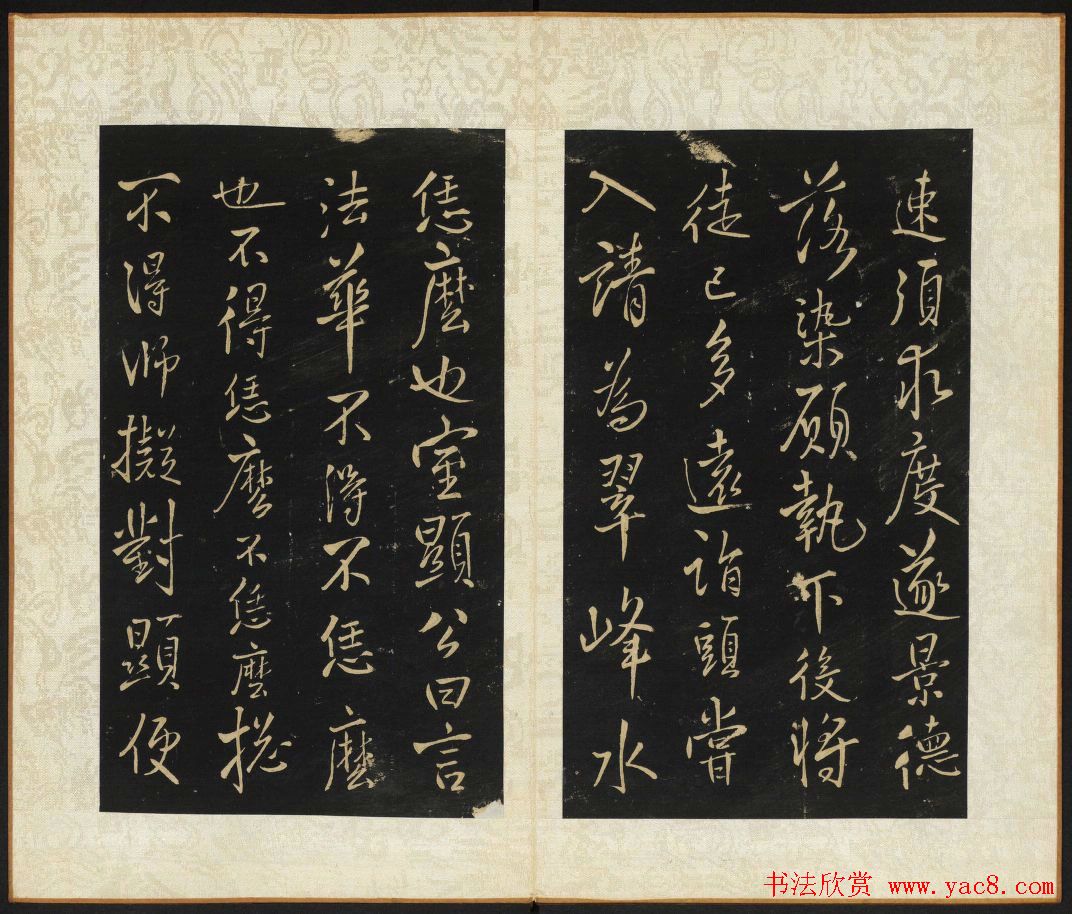 速須求度遂景德
落染願執後將
徒已多遠詣頭甞
入請為翠峰水
恁麼也室顯公曰言
法華不得不恁麼
也不得恁麼不恁麼揔
不得師擬對顯便
书法欣赏 www.yac8.com